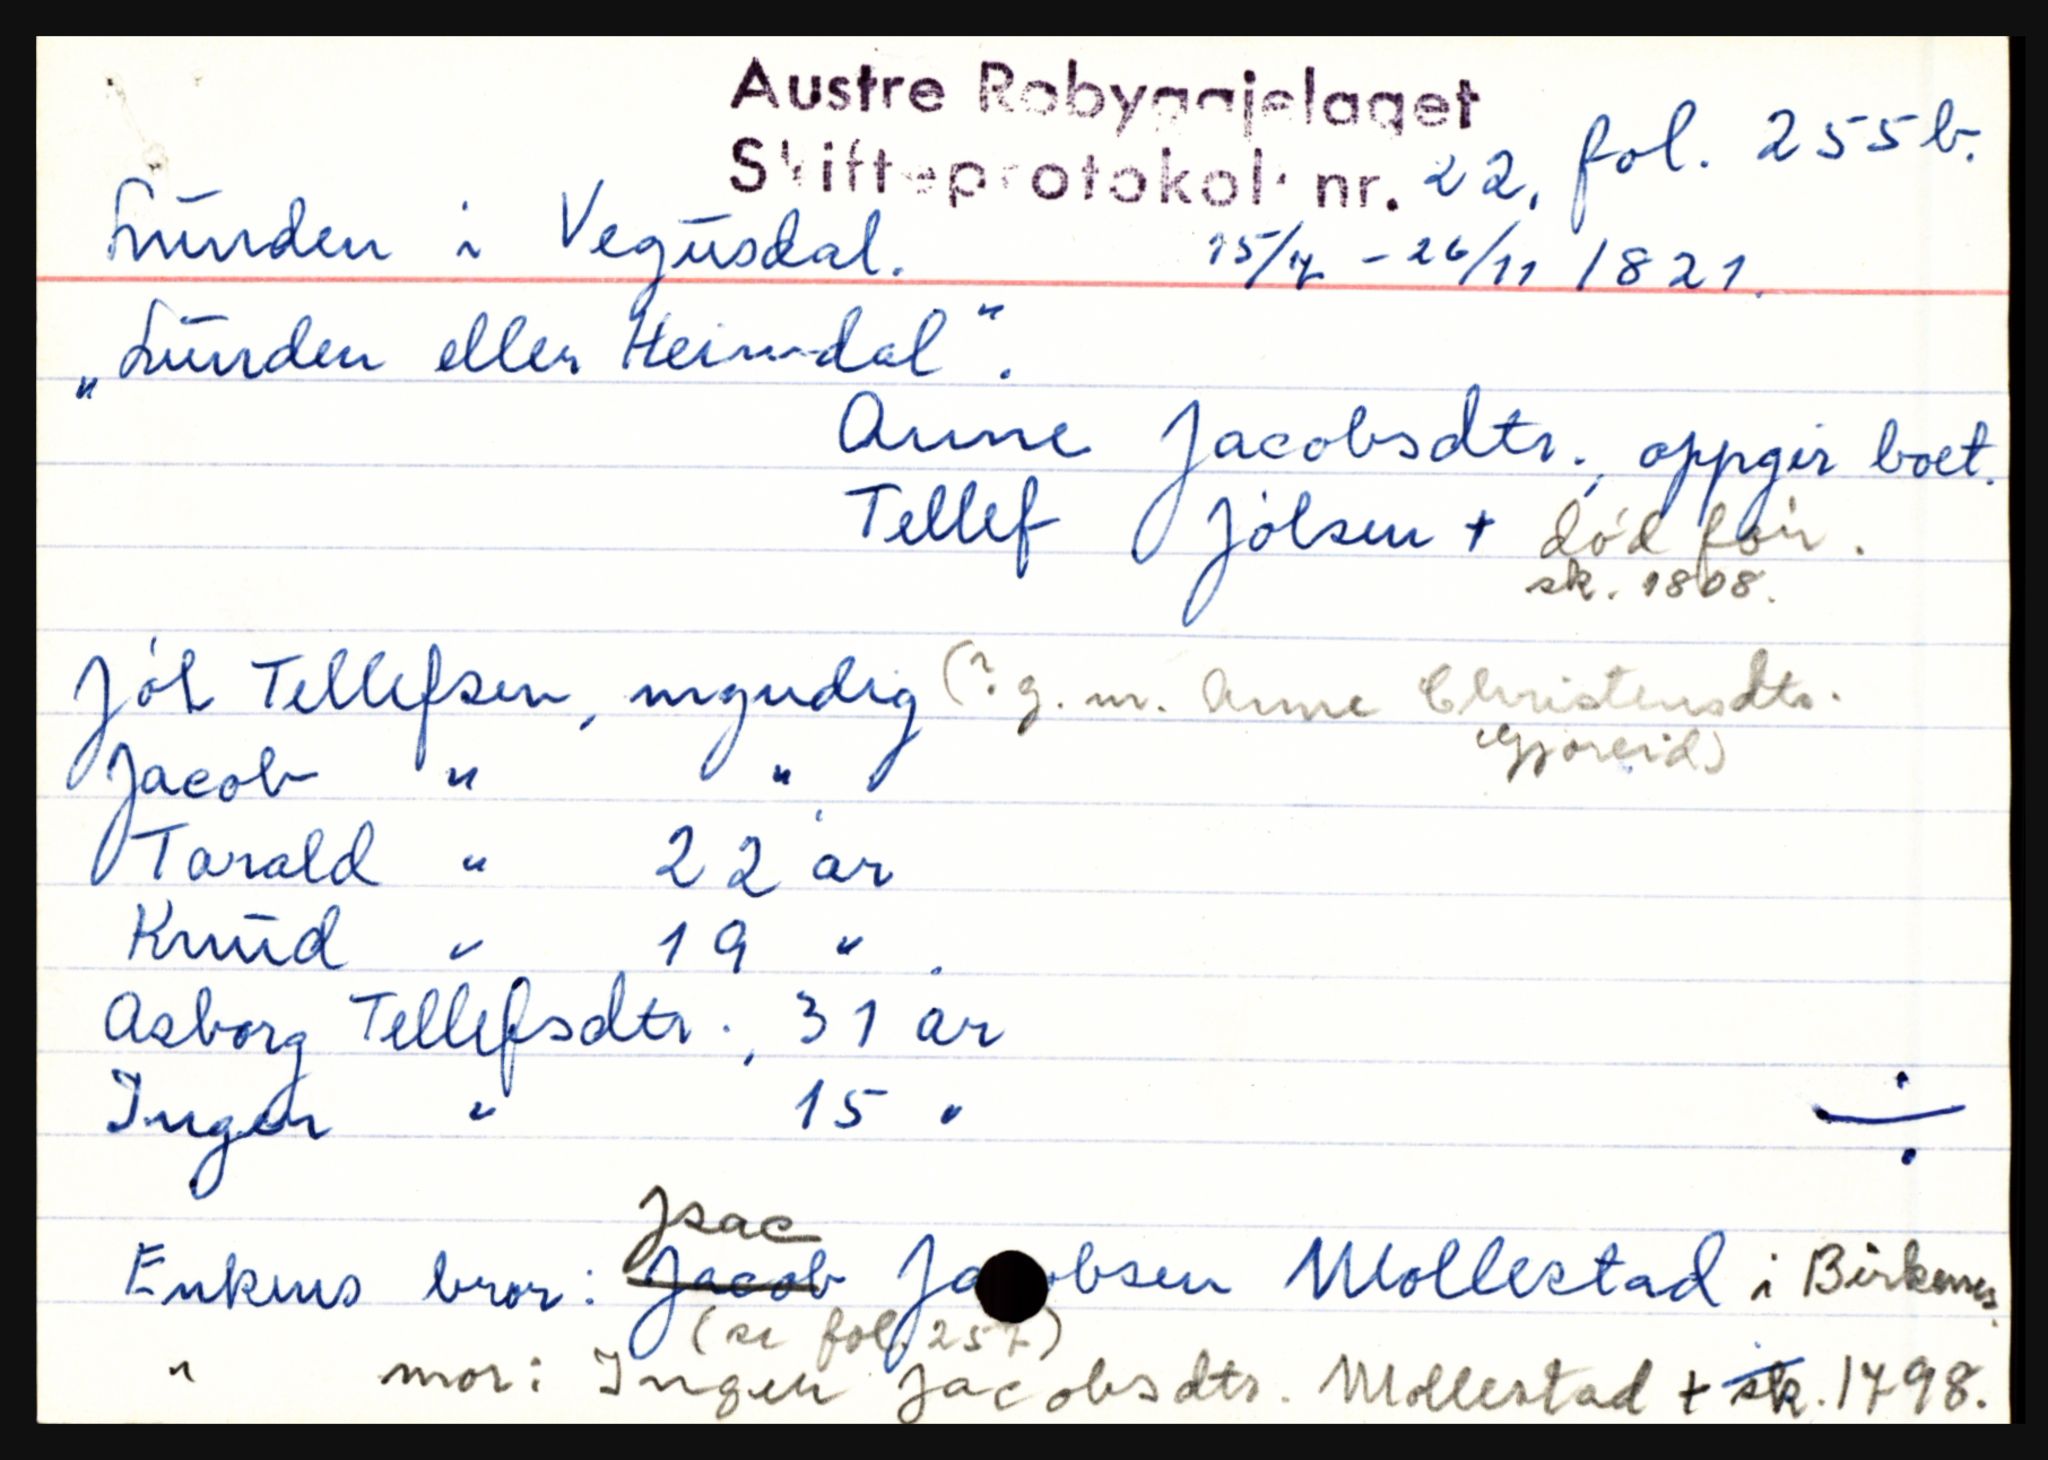 Austre Robyggjelaget
Skifteprotokoll nr. 22, fol. 255b.
Lunden i Vegusdal. 15/7 - 26/11 1821.
„Lunden eller Heimdal".
Anne Jacobsdtr., oppgir boet.
Tellef Jólsen + død før.
sk. 1808.
Jól Tellefsen, myndig (? g. m. Anne Christensdtr.
Gjøreid)
Jacob " "
Tarald " 22 år
Knud " 19 "
Asborg Tellefsdtr., 31 år
Inger " 15 "
÷
Isac
Enkens bror: Jacob Jacobsen Mollestad i Birkenes.
(se fol. 257)
" mor: Inger Jacobsdtr. Mollestad + sk. 1798.